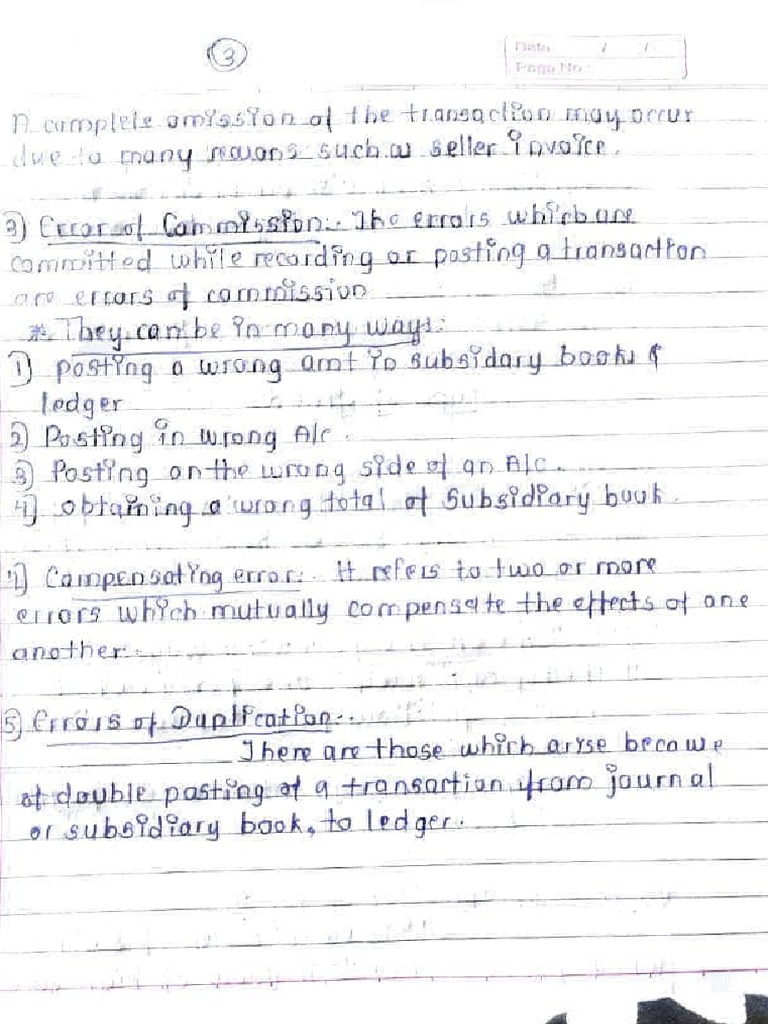 3
Date / /
Page No.
A complete omission of the transaction may occur
due to many reasons such as seller invoice.
3) Error of Commission:- The errors which are
committed while recording or posting a transaction
are errors of commission
* They can be in many ways:
1) posting a wrong amt in subsidary books &
ledger
2) Posting in wrong A/c.
3) Posting on the wrong side of an A/c.
4) obtaining a wrong total of Subsidiary book.
4) Compensating error:- It refers to two or more
errors which mutually compensate the effects of one
another.
5) Errors of Duplication:-
There are those which arise because
of double posting of a transaction from journal
or subsidiary book, to ledger.